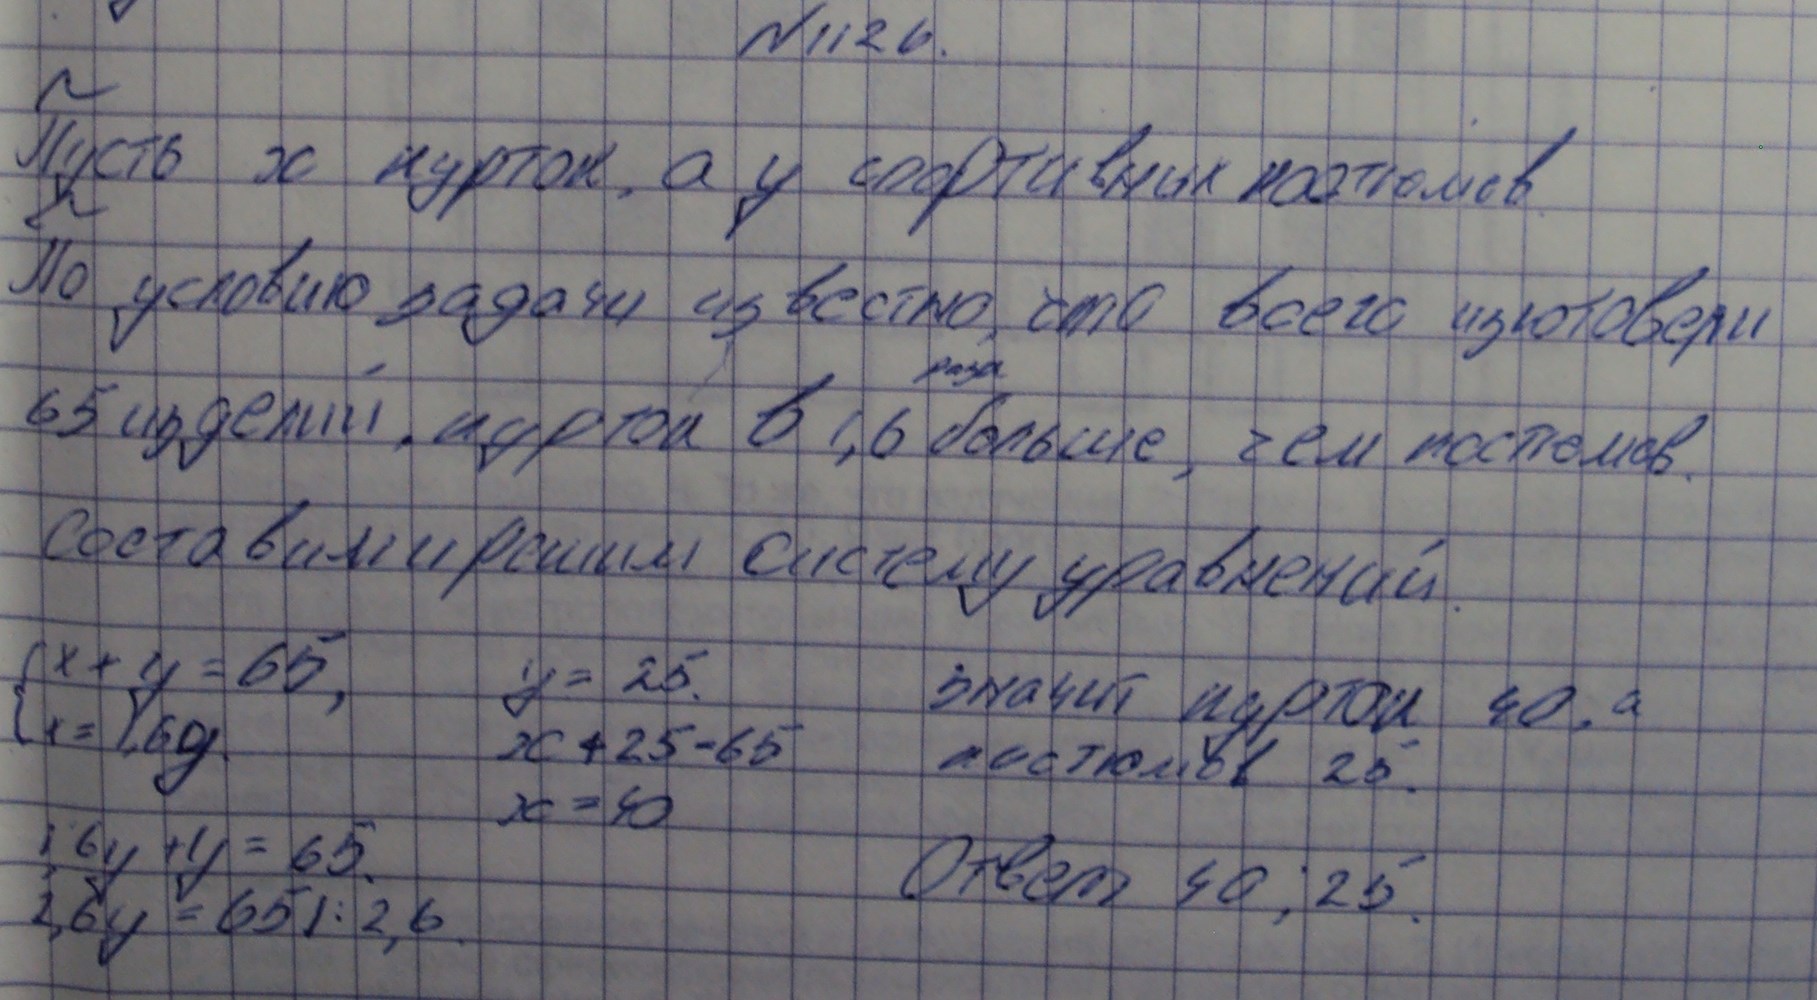 N1126.
Пусть x курток, а y спортивных костюмов
По условию задачи известно, что всего изготовели
раза
65 изделий, курток в 1,6 больше, чем костюмов.
Составим и решим систему уравнений.
{x + y = 65, y = 25. значит курток 40, а
x = 1,6y. x + 25 = 65 костюмов 25.
x = 40
1,6y + y = 65. Ответ 40; 25.
2,6y = 65 |: 2,6.